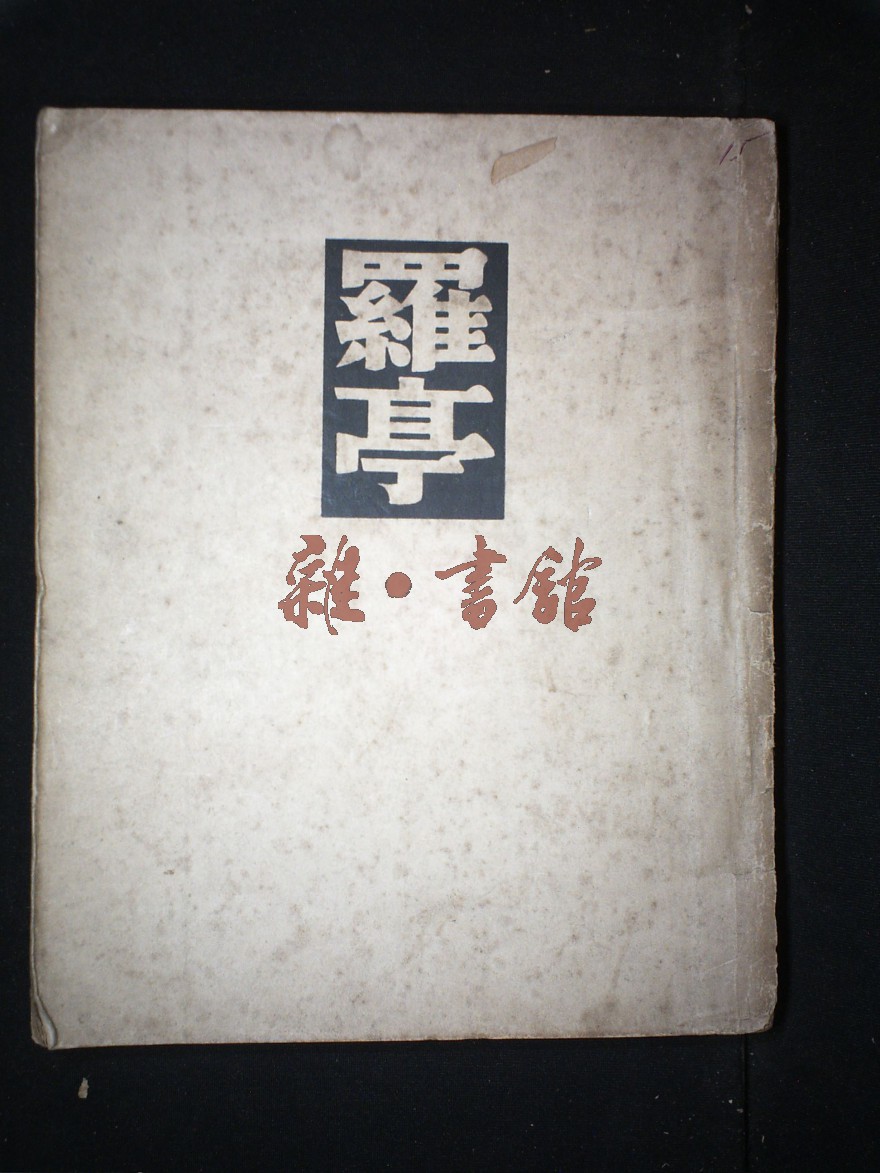 15
羅
亭
雜·書館